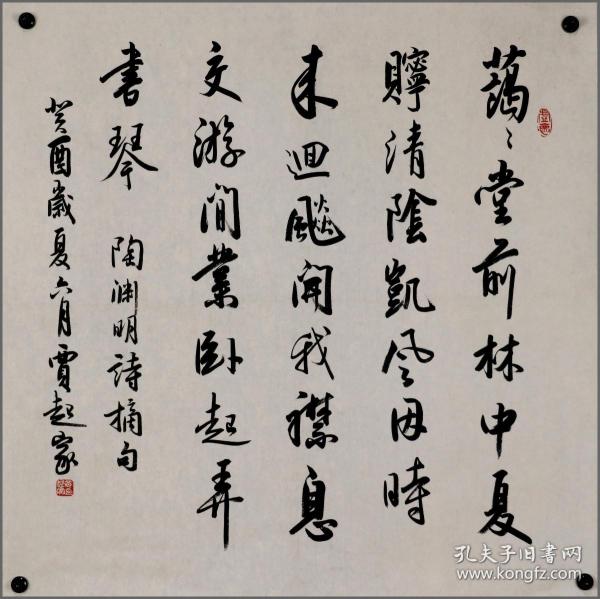 藹〻堂前林中夏
貯清陰凱风因時
来迴飈開我襟息
交游閒業卧起弄
書琴 陶渊明詩摘句
癸酉歲夏六月賈起家
孔夫子旧書网
www.kongfz.com